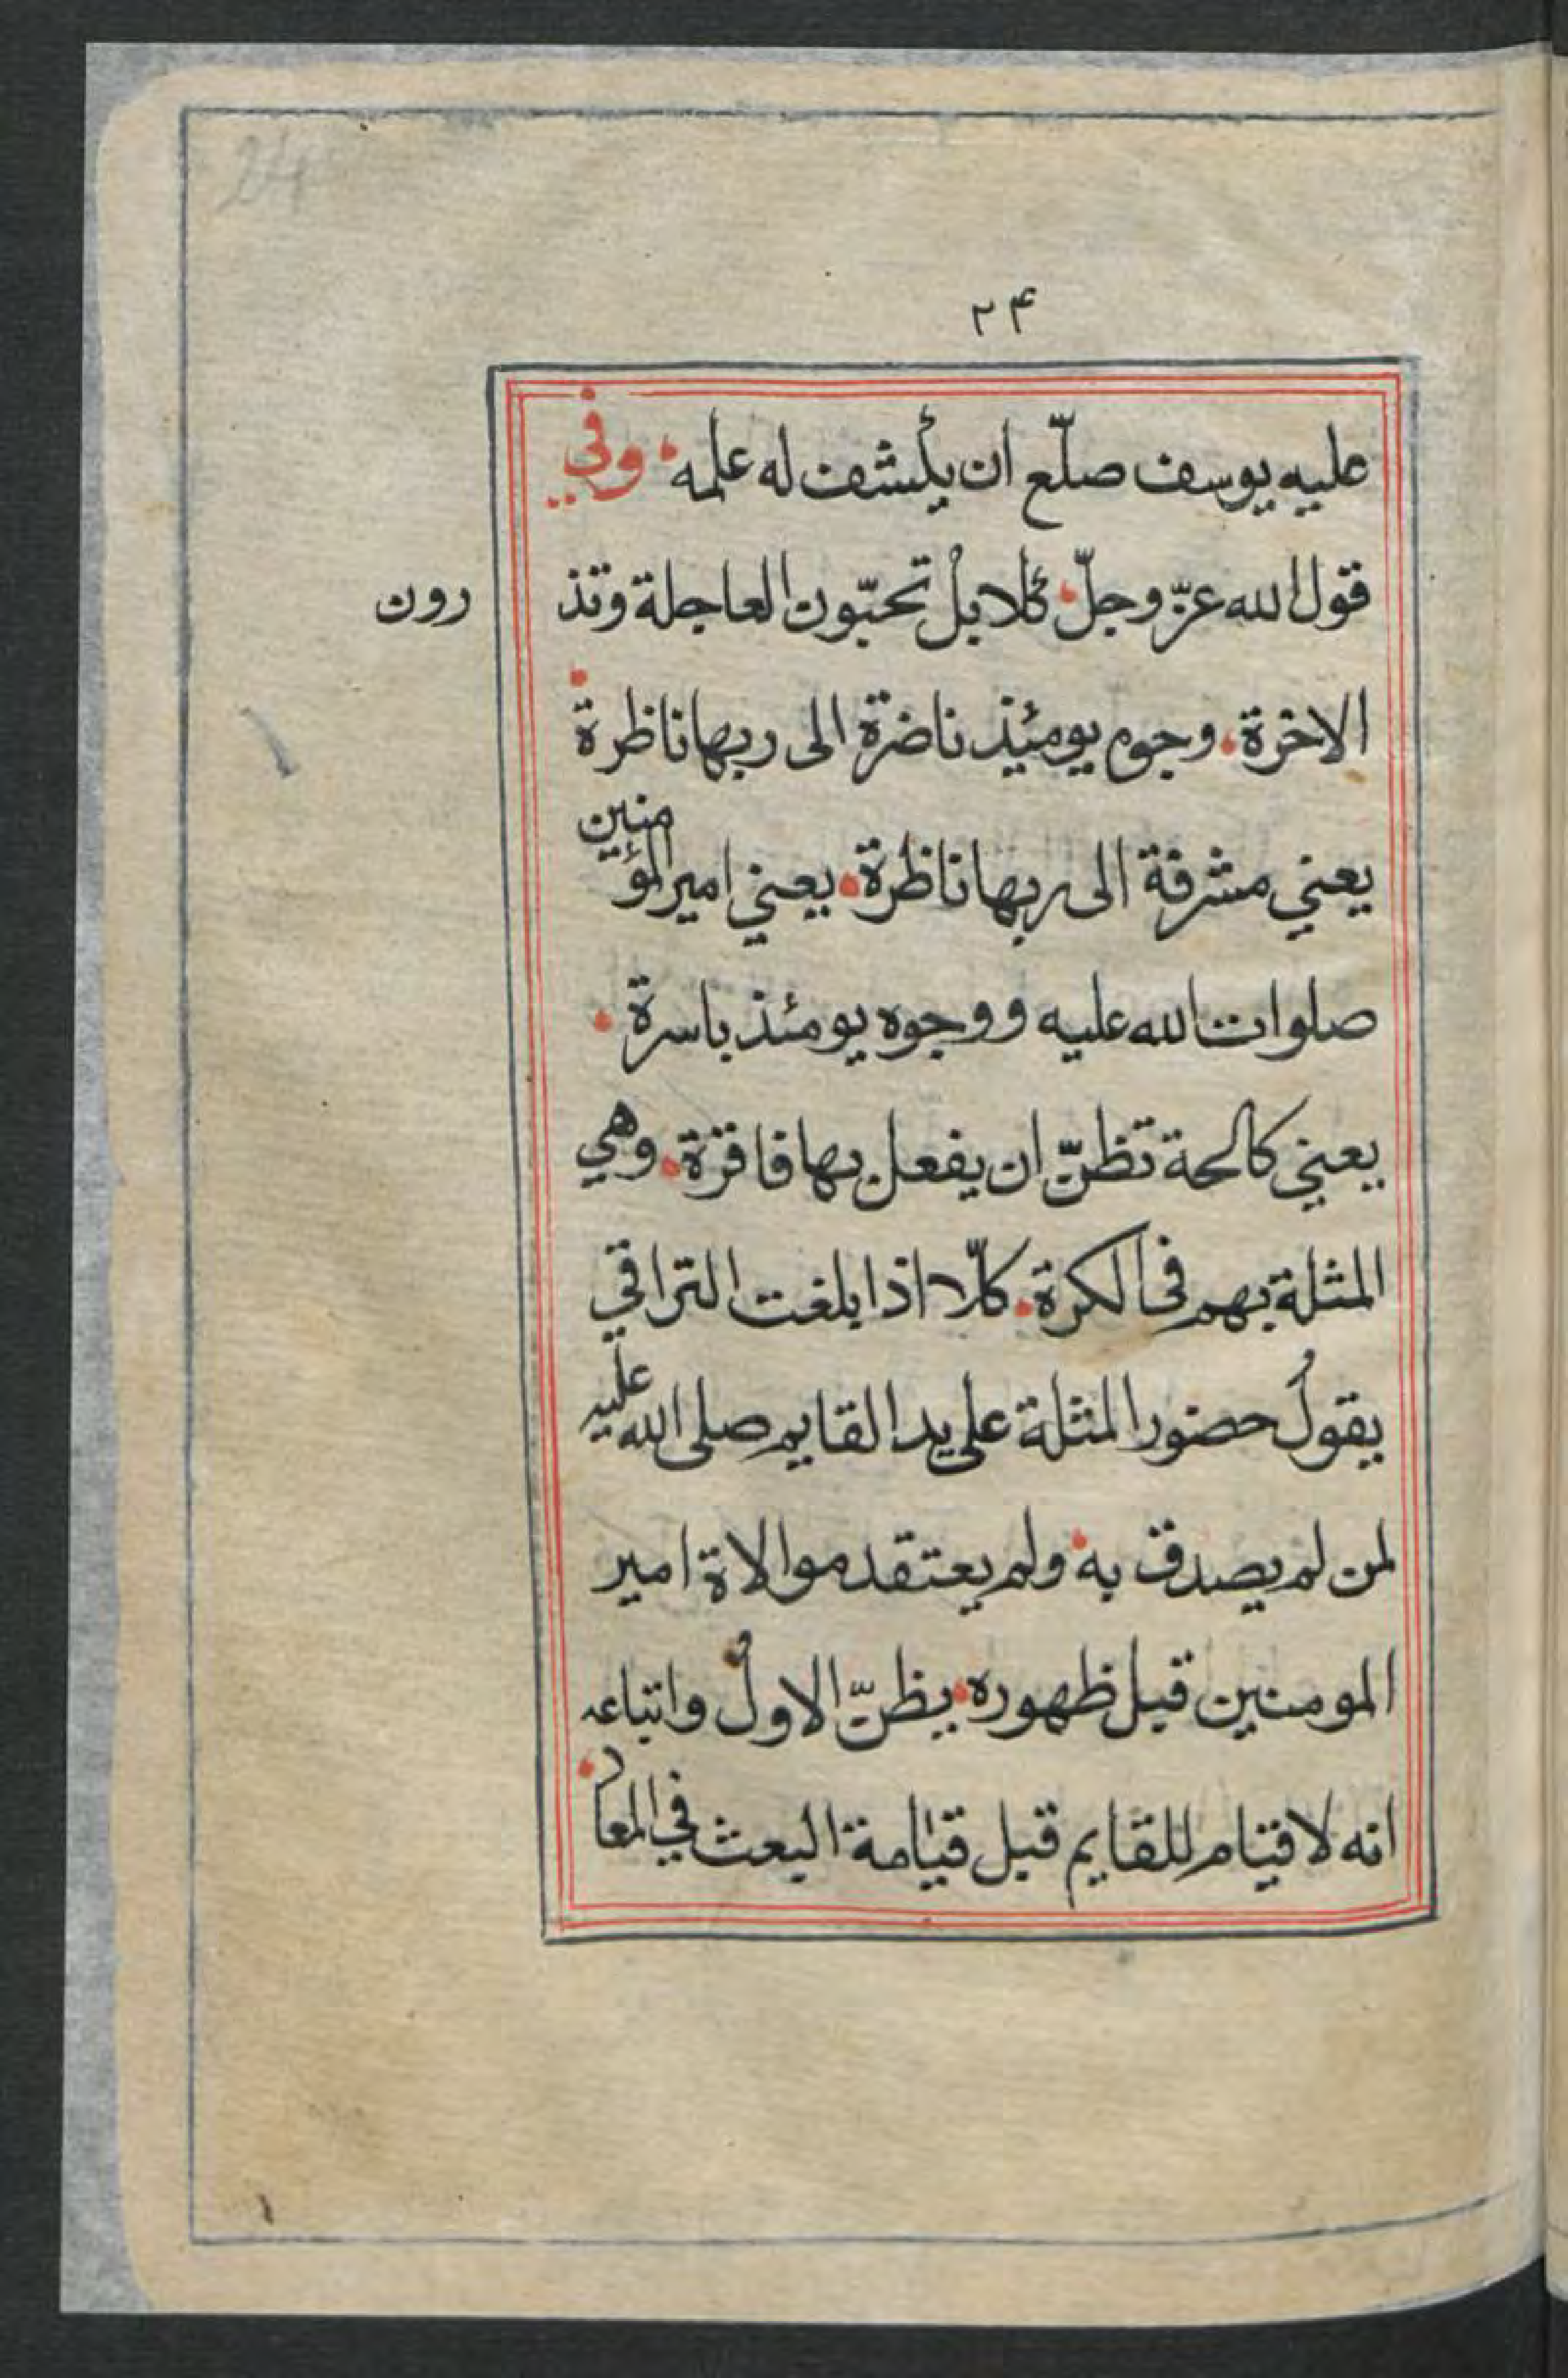 24
٢۴
عليه يوسف صلّع ان يكشف له علمه وفي
قول الله عزّ وجلّ كلا بل تحبّون العاجلة وتذ رون
الاخرة وجوه يومئذ ناضرة الى ربها ناظرة
يعني مشرقة الى ربها ناظرة يعني امير المؤ منين
صلوات الله عليه ووجوه يومئذ باسرة
يعني كالحة تظنّ ان يفعل بها فاقرة وهي
المثلة بهم في الكرة كلّا اذا بلغت التراقي
يقول حضور المثلة على يد القايم صلى الله عليه
لمن لم يصدق به ولم يعتقد موالاة امير
المومنين قبل ظهوره يظنّ الاول واتباعه
انه لا قيام للقايم قبل قيامة البعث في المعاد